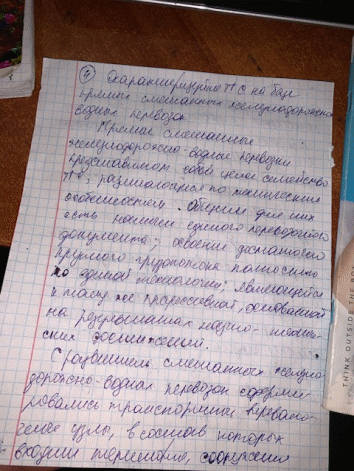 ⑦ Охарактеризуйте ТТС на базе
прямых смешанных железнодорожно-
водных перевозок
Прямые смешанные
железнодорожно-водные перевозки
представляют собой целое семейство
ТТС, различающихся по техническим
особенностям. Общим для них
есть наличие единого перевозочного
документа; освоение достаточно
крупного грузопотока полностью
по единой технологии, являющейся
к тому же прогрессивной, основанной
на результатах научно-техничес-
ских достижений.
С развитием смешанных железно-
дорожно-водных перевозок сформи-
ровались транспортные перевало-
чные узлы, в состав которых
входили терминалы, сооружено
THINK OUTSIDE